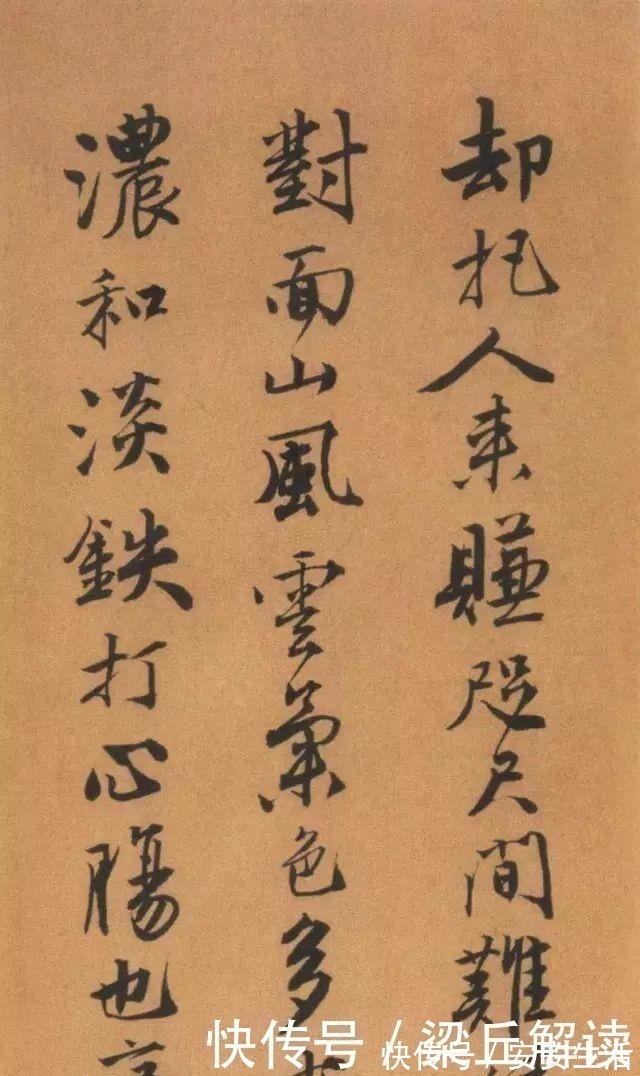 却把人来賺咫尺間難
對面山風雲氣色多
濃和淡鉄打心腸也
快传号 / 梁丘解读
快传号 /